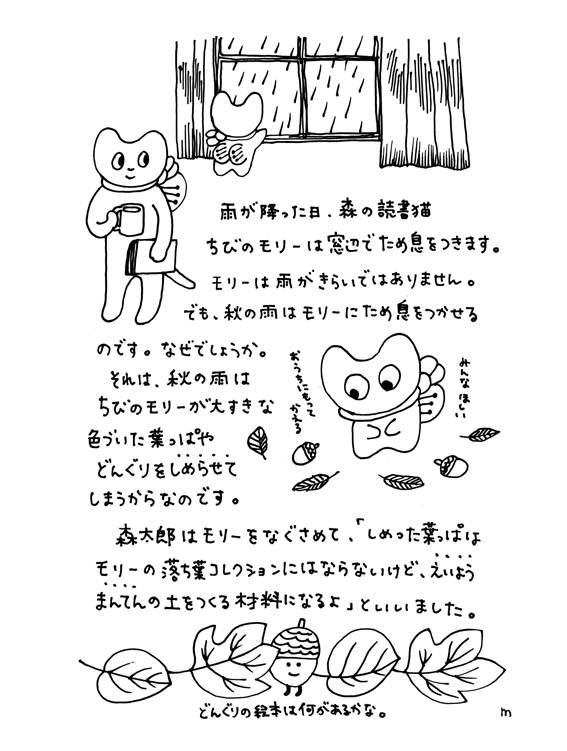 雨が降った日、森の読書猫
ちびのモリーは窓辺でため息をつきます。
モリーは雨がきらいではありません。
でも、秋の雨はモリーにため息をつかせる
のです。なぜでしょうか。
それは、秋の雨は
ちびのモリーが大すきな
色づいた葉っぱや
どんぐりをしめらせて
しまうからなのです。
みんなほしい
おうちにもって
かえる
森太郎はモリーをなぐさめて、「しめった葉っぱは
モリーの落ち葉コレクションにはならないけど、えいよう
まんてんの土をつくる材料になるよ」といいました。
どんぐりの絵本は何があるかな。
m